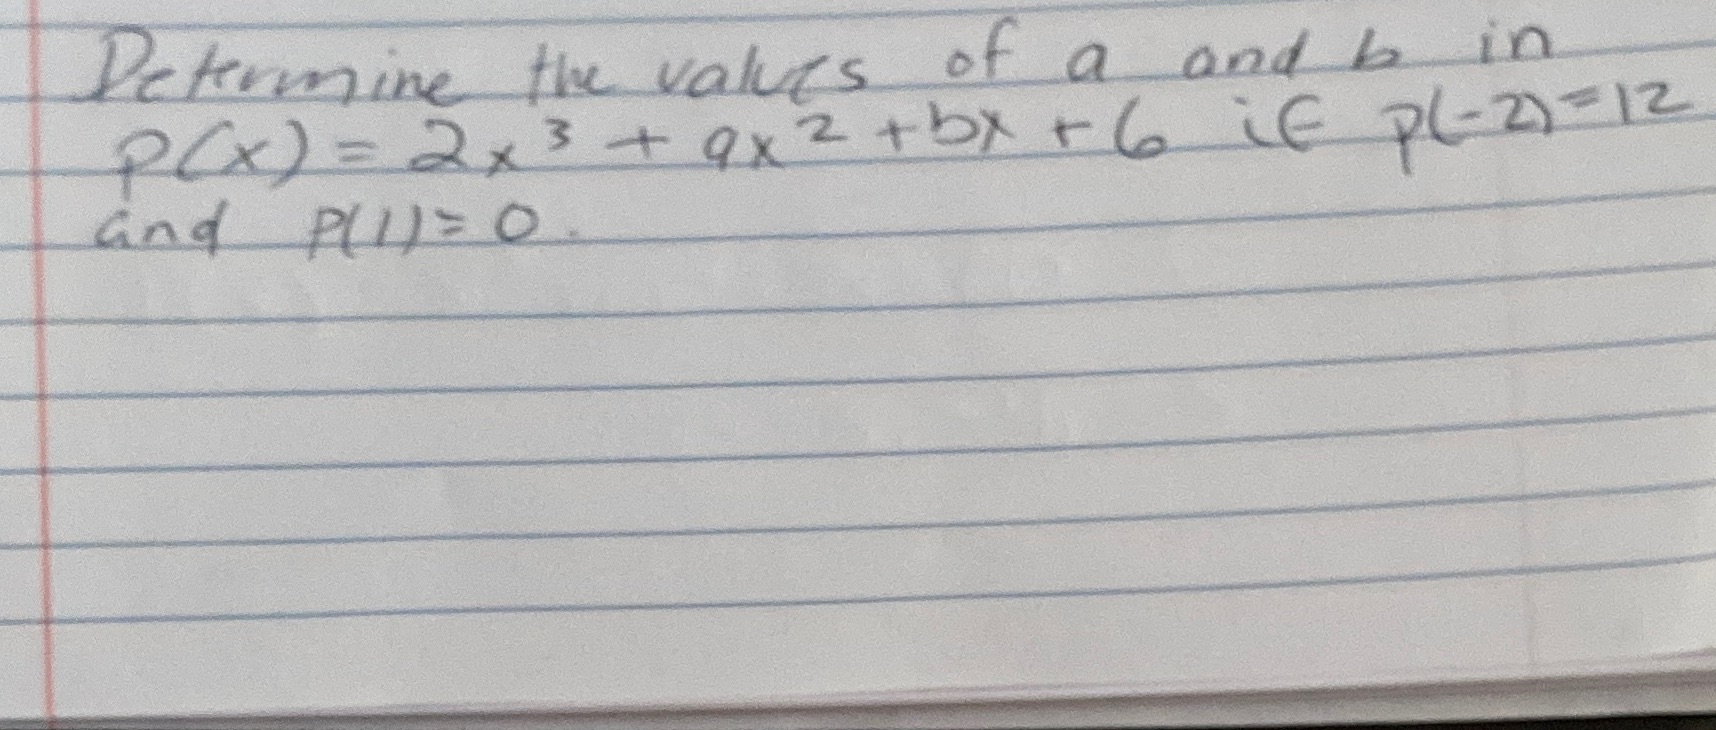 Determine the values of a and b in
p(x) = 2x³ + ax² + bx + 6 if p(-2) = 12
and p(1) = 0.